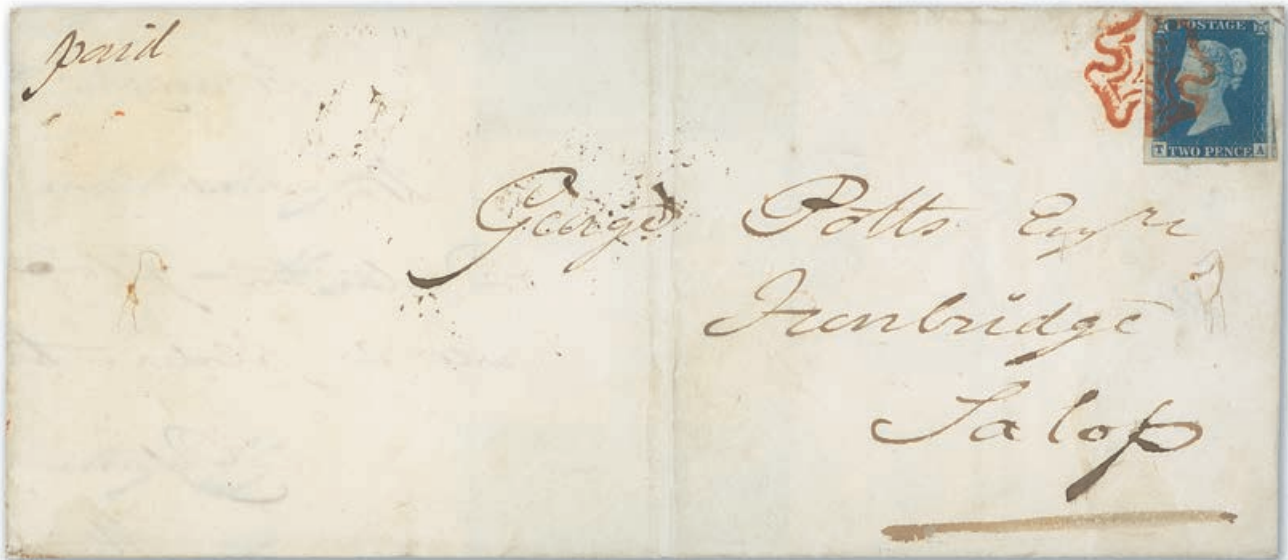 paid
POSTAGE
T TWO PENCE A
George Potts Esqre
Ironbridge
Salop